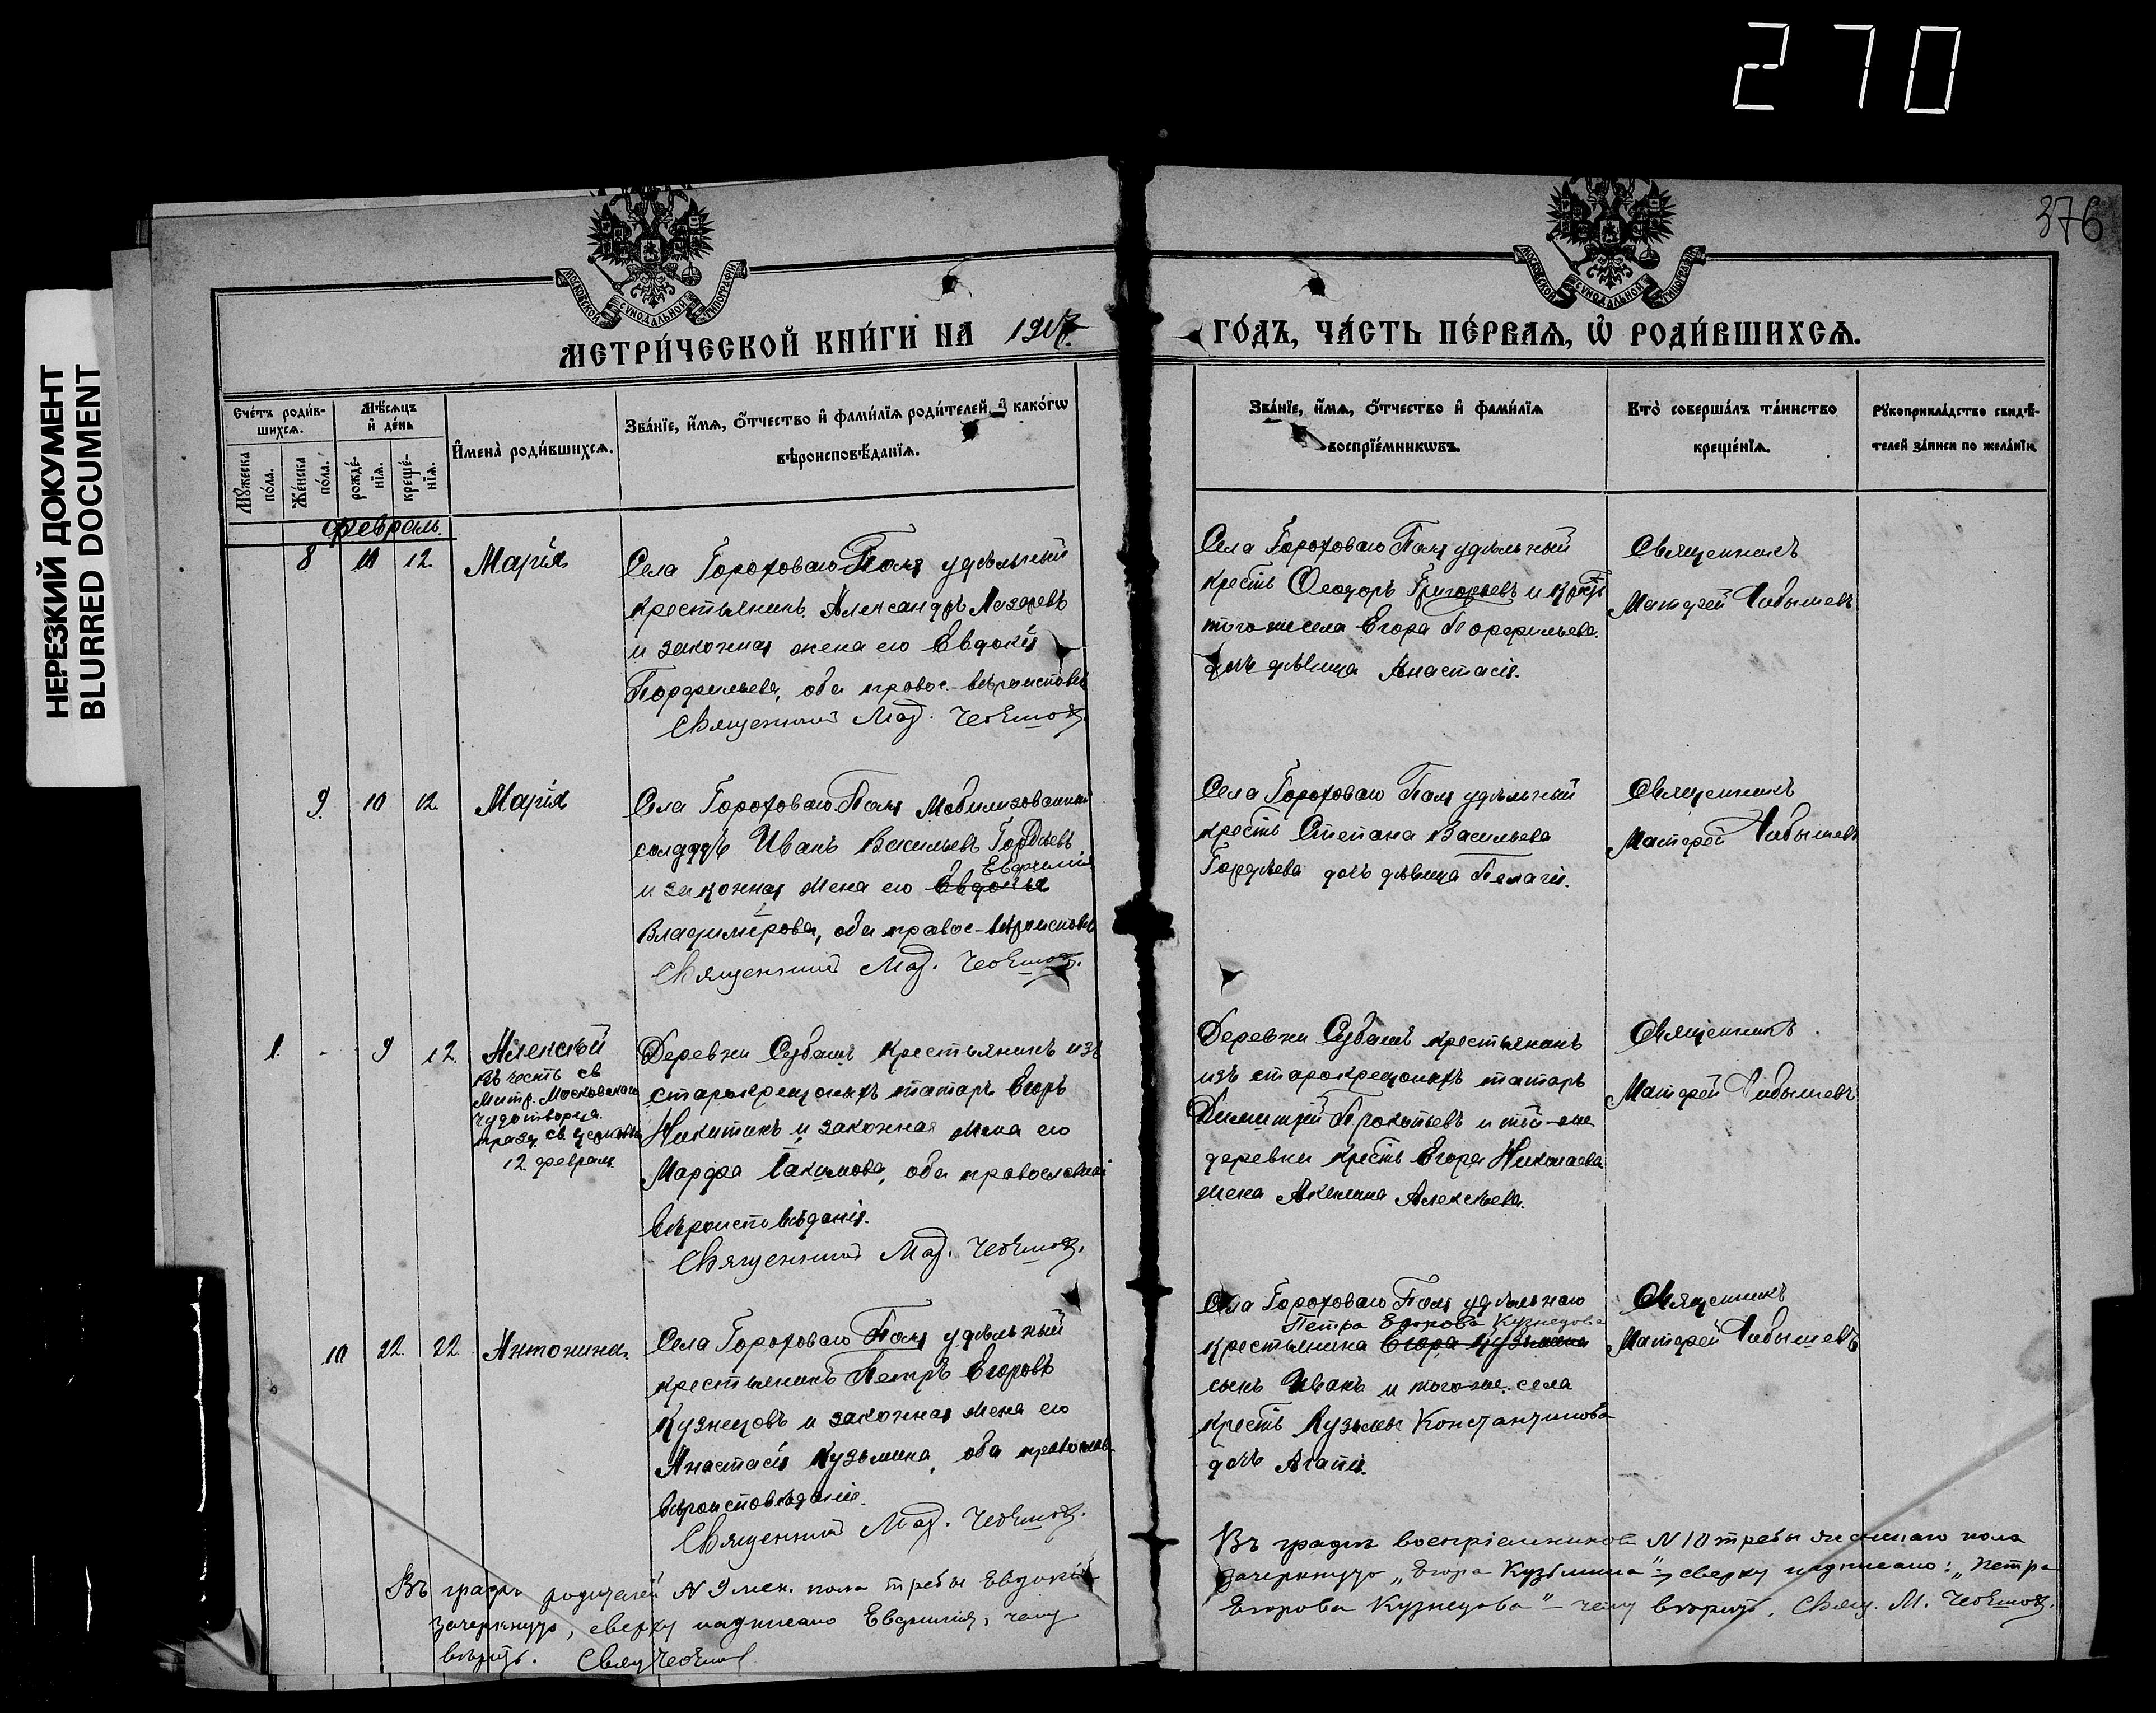 270
376
НЕРЕЗКИЙ ДОКУМЕНТ
BLURRED DOCUMENT
МОСКОВСКОЙ СУНОДАЛЬНОЙ ТИПОГРАФІИ
МОСКОВСКОЙ СУНОДАЛЬНОЙ ТИПОГРАФІИ
МЕТРИ́ЧЕСКОЙ КНИ́ГИ НА 1917
ГО́ДЪ, ЧА́СТЬ ПЕ́РВАѦ, Ѡ РОДИ́ВШИХСѦ.
Сче́тъ роди́в-
шихсѧ.
Мѣ́сѧцъ
и҆ де́нь
Мꙋ́жеска
по́ла.
Же́нска
по́ла.
рожде́-
нїѧ.
креще́-
нїѧ.
И҆мена̀ роди́вшихсѧ.
Зва́нїе, и҆́мѧ, ѻ҆́тчество и҆ фами́лїѧ роди́телей и҆ како́гѡ
вѣроисповѣ́данїѧ.
Зва́нїе, и҆́мѧ, ѻ҆́тчество и҆ фами́лїѧ
воспрїе́мникѡвъ.
Кто̀ соверша́лъ та́инство
креще́нїѧ.
Рꙋкоприкла́дство свидѣ́-
телей за́писи по жела́нїю.
Февраль.
8 12 Марія
Села Гороховаго Поля удѣльный
крестьянинъ Александръ Лазаревъ
и законная жена его Евдокія
Порфирьева, оба правос.-вѣроисповѣд
Священникъ Мат.
Села Гороховаго Поля удѣльный
крестн Ѳеодоръ Григорьевъ и крест
того же села Егора Порфирьева
дочь дѣвица Анастасія.
Священникъ
Матфей
9. 10 12 Марія
Села Гороховаго Поля Мобилизованный
солдатъ Иванъ Васильевъ Гордѣевъ
Евфимія
и законная жена его Евдокія
Владимірова, оба правос-вѣроисповѣд
Священникъ Мат.
Села Гороховаго Поля удѣльный
крестн Степана Васильева
Гордѣева дочь дѣвица Пелагія.
Священникъ
Матфей
1. - 9 12. Алексій
въ честь св
Митр. Московскаго
Чудотворца
празд. св церковью
12 февраля.
Деревни Субашъ крестьянинъ изъ
старокрещоныхъ татаръ Егоръ
Никитинъ и законная жена его
Марфа Іакимова, оба православнаго
вѣроисповѣданія.
Священникъ Мат.
Деревни Субашъ крестьянинъ
изъ старокрещоныхъ татаръ
Димитрій Прокопьевъ и той-же
деревни крестн Егора Николаева
жена Акилина Алексѣева.
Священникъ
Матфей
10 22 22 Антонина
Села Гороховаго Поля удѣльный
крестьянинъ Петръ Егоровъ
Кузнецовъ и законная жена его
Анастасія Кузьмина, оба православ
вѣроисповѣданія.
Священникъ Мат.
Села Гороховаго Поля удѣльнаго
Петра Егорова Кузнецова
крестьянина Егора Кузьмина
сынъ Иванъ и того-же села
крестн Кузьмы Константинова
дочь Агапія.
Священникъ
Матфей
Въ графѣ родителей N 9 жен. пола требы Евдокія
зачеркнуто, сверху надписано Евфимія, чему
вѣрить. Свящ
Въ графѣ воспріемниковъ N 10 требы женскаго пола
зачеркнуто „Егора Кузьмина“, сверху надписано: „Петра
Егорова Кузнецова“ – чему вѣрить. Свящ. М.